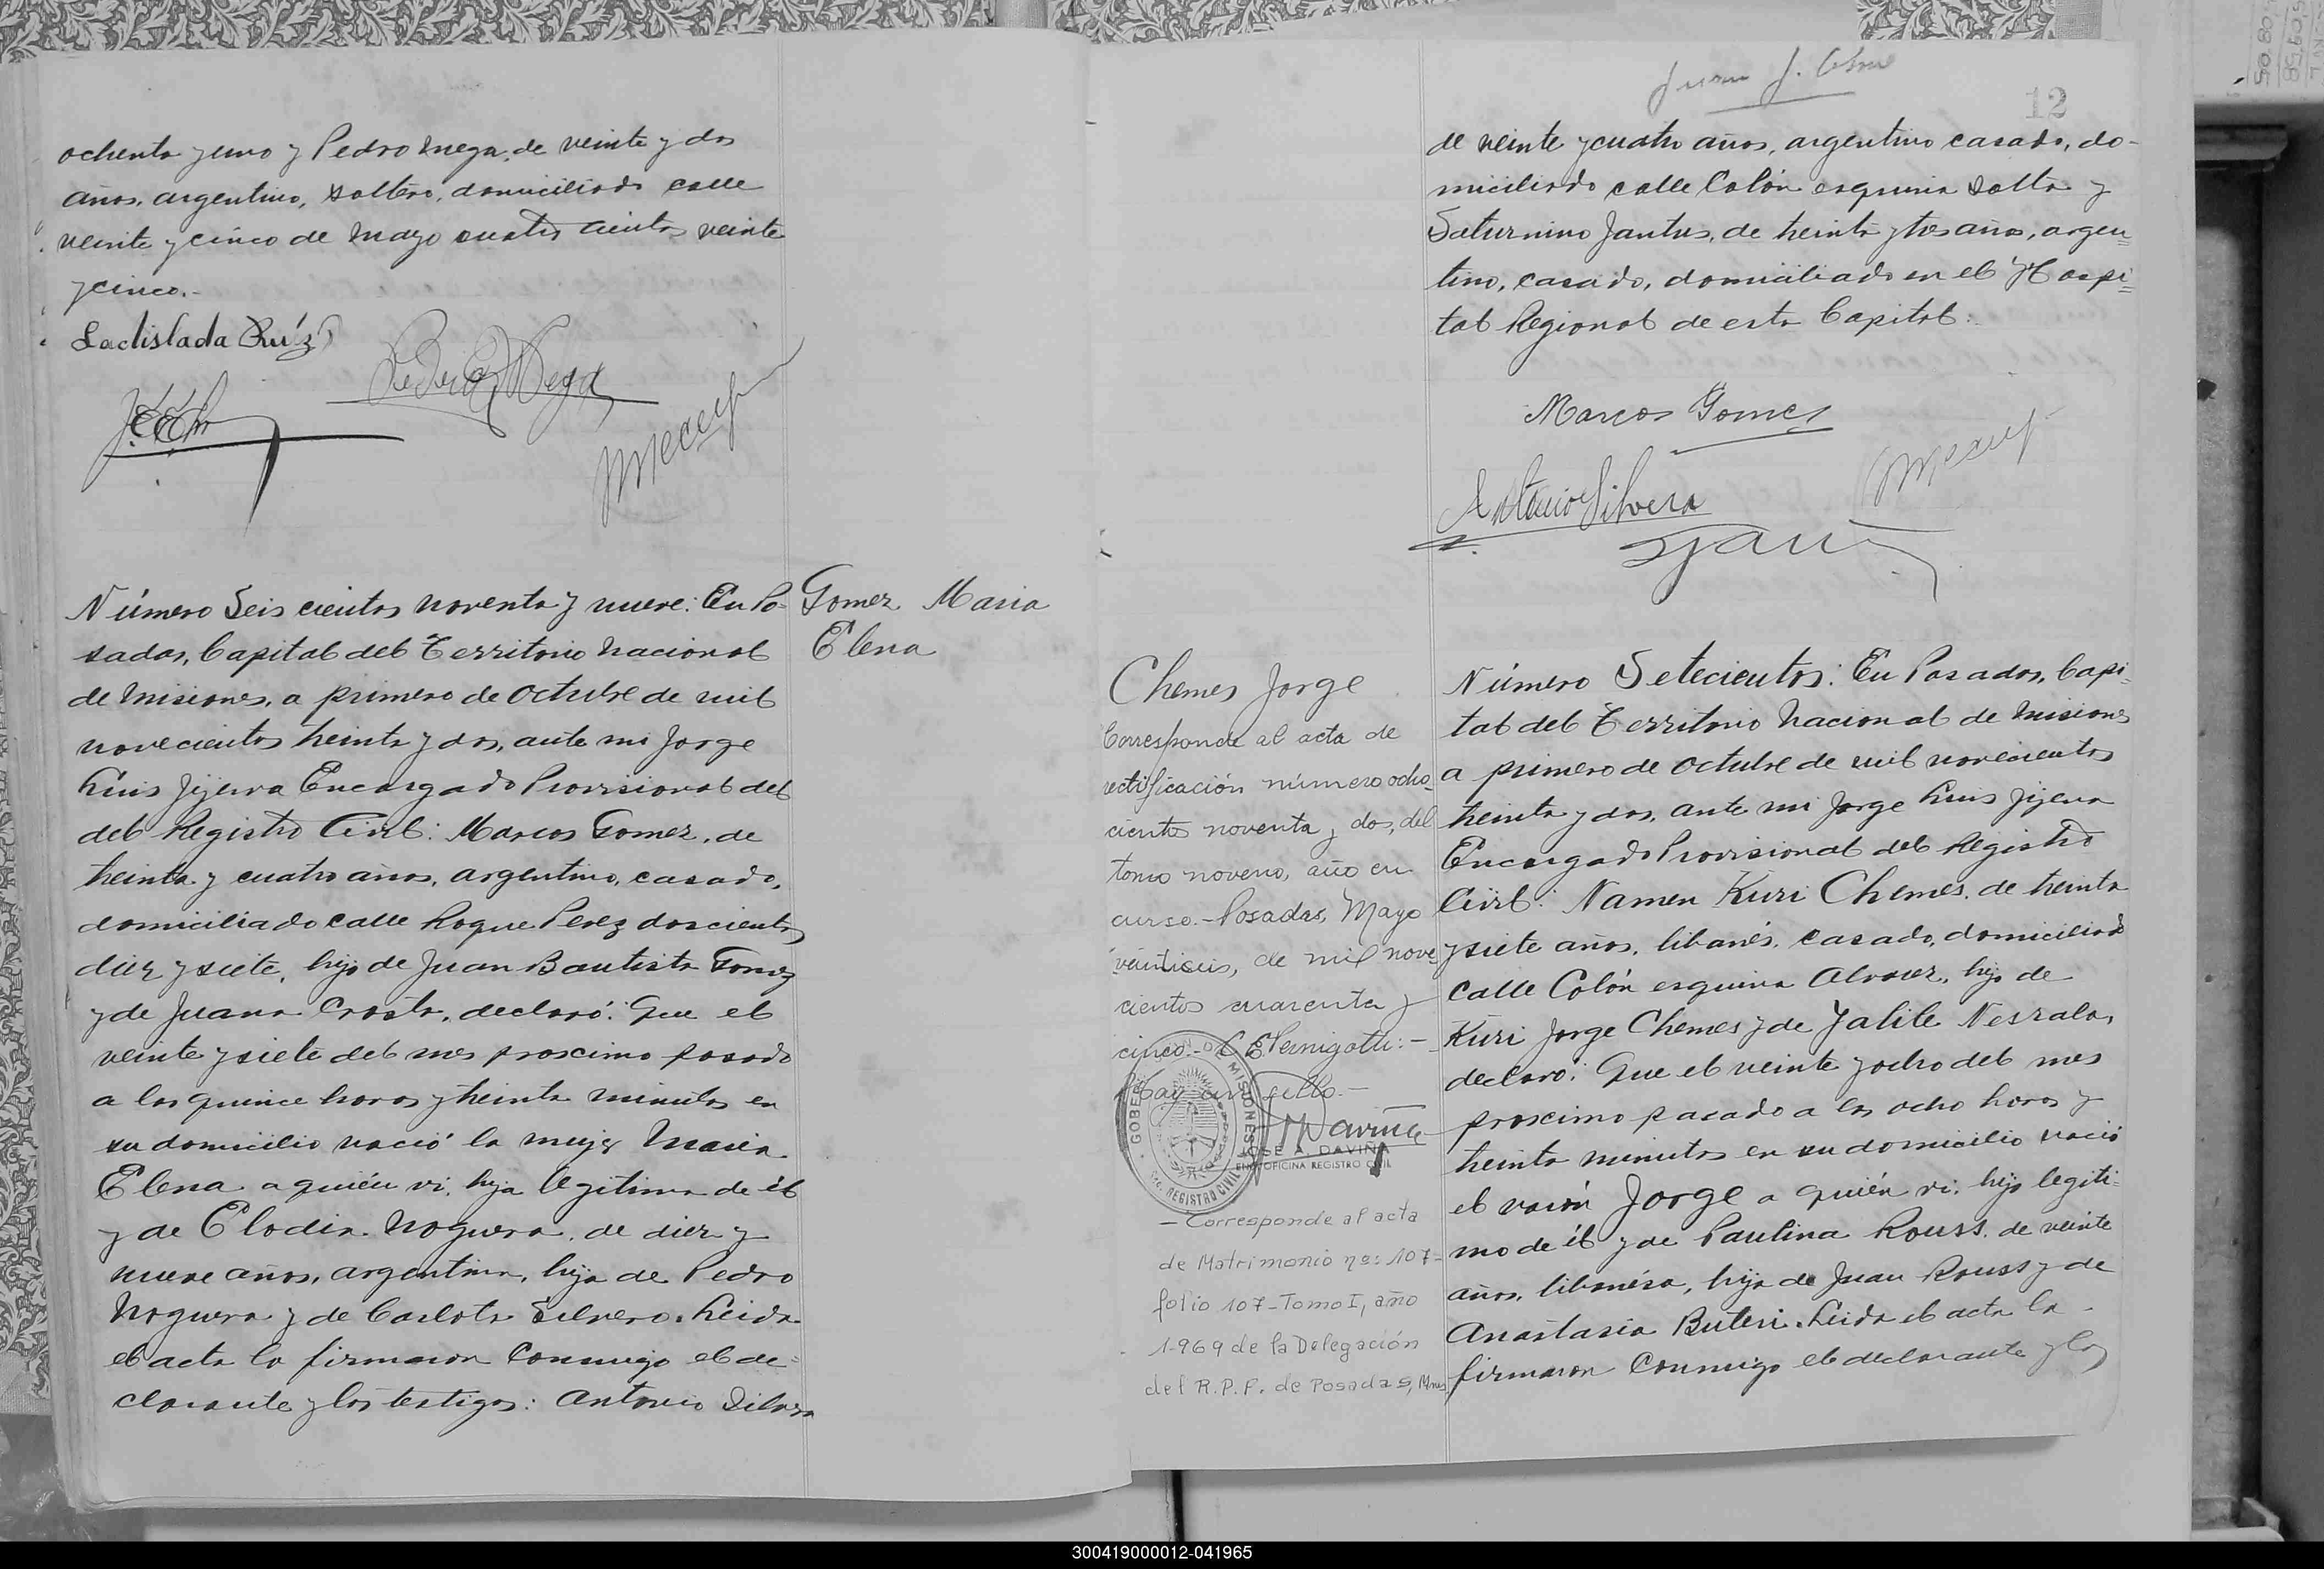 ochenta y uno y Pedro Vega, de veinte y dos
años, argentino, soltero, domiciliado calle
veinte y cinco de Mayo cuatro cientos veinte
y cinco.-
Ladislada Ruíz
Pedro Vega
Número Seis cientos noventa y nueve: En Po-
sadas, Capital del Territorio Nacional
de Misiones, a primero de Octubre de mil
novecientos treinta y dos, ante mi Jorge
Luis Jijena Encargado Provisional del
del Registro Civil: Marcos Gomez, de
treinta y cuatro años, argentino, casado,
domiciliado calle Roque Perez doscientos
diez y siete, hijo de Juan Bautista Gomez
y de Juana Crosta, declaró: Que el
veinte y siete del mes proscimo pasado
a las quince horas y treinta minutos en
su domicilio nació la mujer Maria
Elena a quién vi, hija legitima de él
y de Elodia Noguera, de diez y
nueve años, argentina, hija de Pedro
Noguera y de Carlota Silvero. Leida
el acta la firmaron conmigo el de-
clarante y los testigos: Antonio Silvera
Gomez Maria
Elena
12
de veinte y cuatro años, argentino casado, do-
miciliado calle Colón esquina Salta y
Saturnino Jantus, de treinta y tres años, argen=
tino, casado, domiciliado en el Hospi=
tal Regional de esta Capital:
Marcos Gomez
Antonio Silvera
Chemes Jorge
Corresponde al acta de
rectificación número ocho-
cientos noventa y dos, del
tomo noveno, año en
curso.- Posadas, Mayo
veintiseis, de mil nove
cientos cuarenta y
cinco.- C E Pernigotti:-
Hay un sello.-
JOSE A. DAVIÑA
OFICINA REGISTRO CIVIL
GOBERNACIÓN DE MISIONES
REGISTRO CIVIL
- Corresponde al acta
de Matrimonio nº: 107-
folio 107-Tomo I, año
1.969 de la Delegación
del R.P.P. de Posadas, Mnes.
Número Setecientos: En Posadas, Capi-
tal del Territorio Nacional de Misiones
a primero de Octubre de mil novecientos
treinta y dos, ante mi Jorge Luis Jijena
Encargado Provisional del Registro
Civil: Namen Kuri Chemes, de treinta
y siete años, libanés, casado, domiciliado
calle Colón esquina Alvarez, hijo de
Kuri Jorge Chemes y de Jalile Nesrala,
declaró: Que el veinte y ocho del mes
proscimo pasado a las ocho horas y
treinta minutos en su domicilio nació
el varón Jorge a quién vi, hijo legiti-
mo de él y de Paulina Rouss, de veinte
años, libanésa, hija de Juan Rouss y de
Anastasia Buteri. Leida el acta la
firmaron conmigo el declarante y los
300419000012-041965